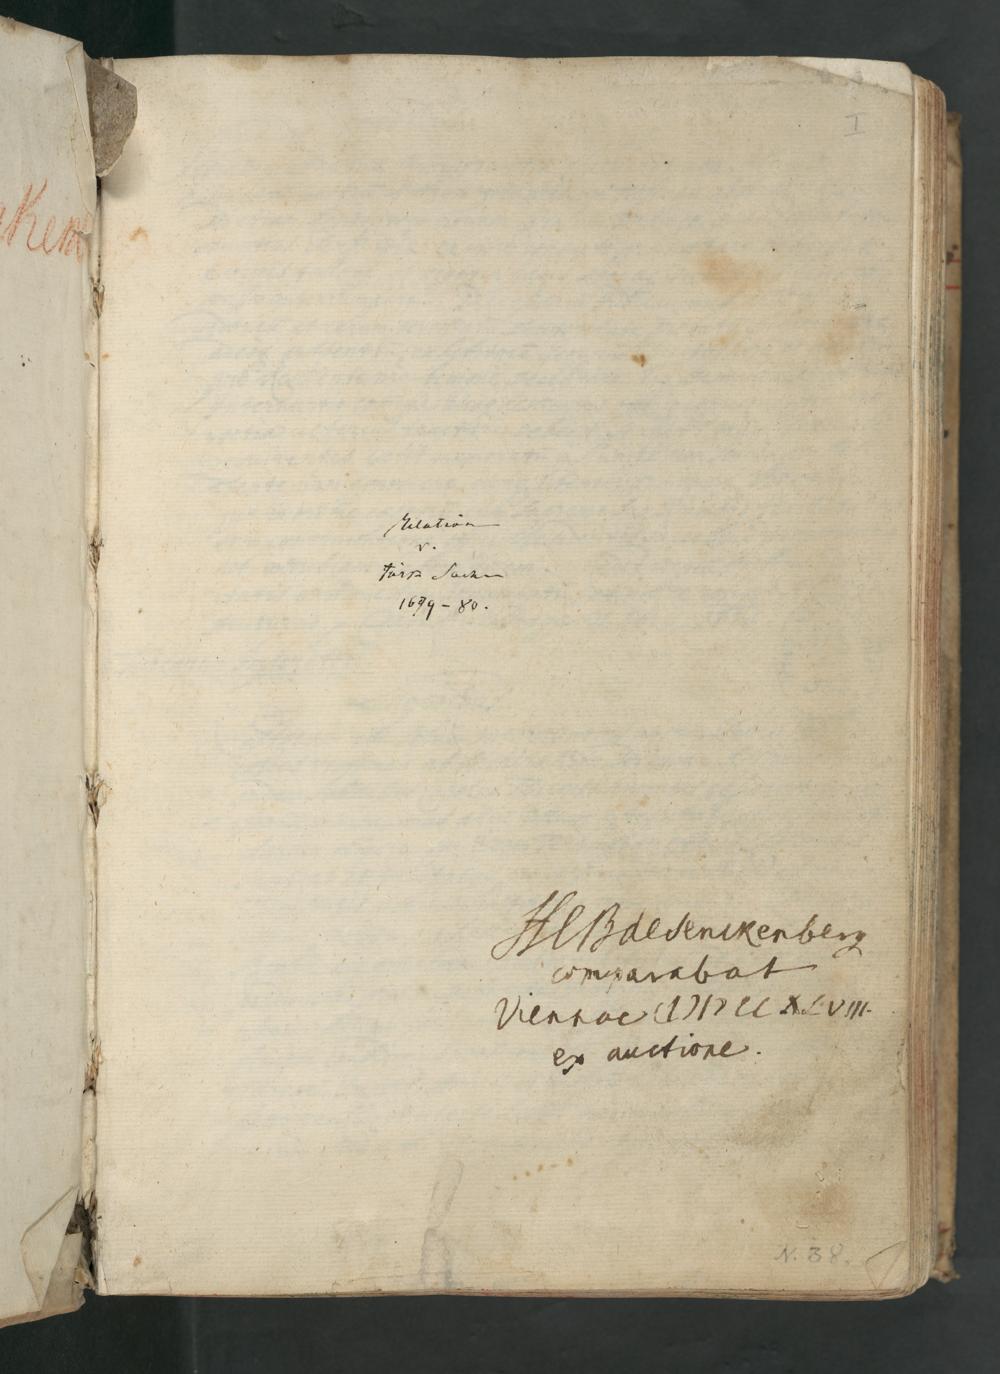 I
Relation
v.
Türk Sachen
1679-80.
HCBdeSenckenberg
comparabat
Viennae CIƆIƆCC XLVIII.
ex auctione.
N. 38.